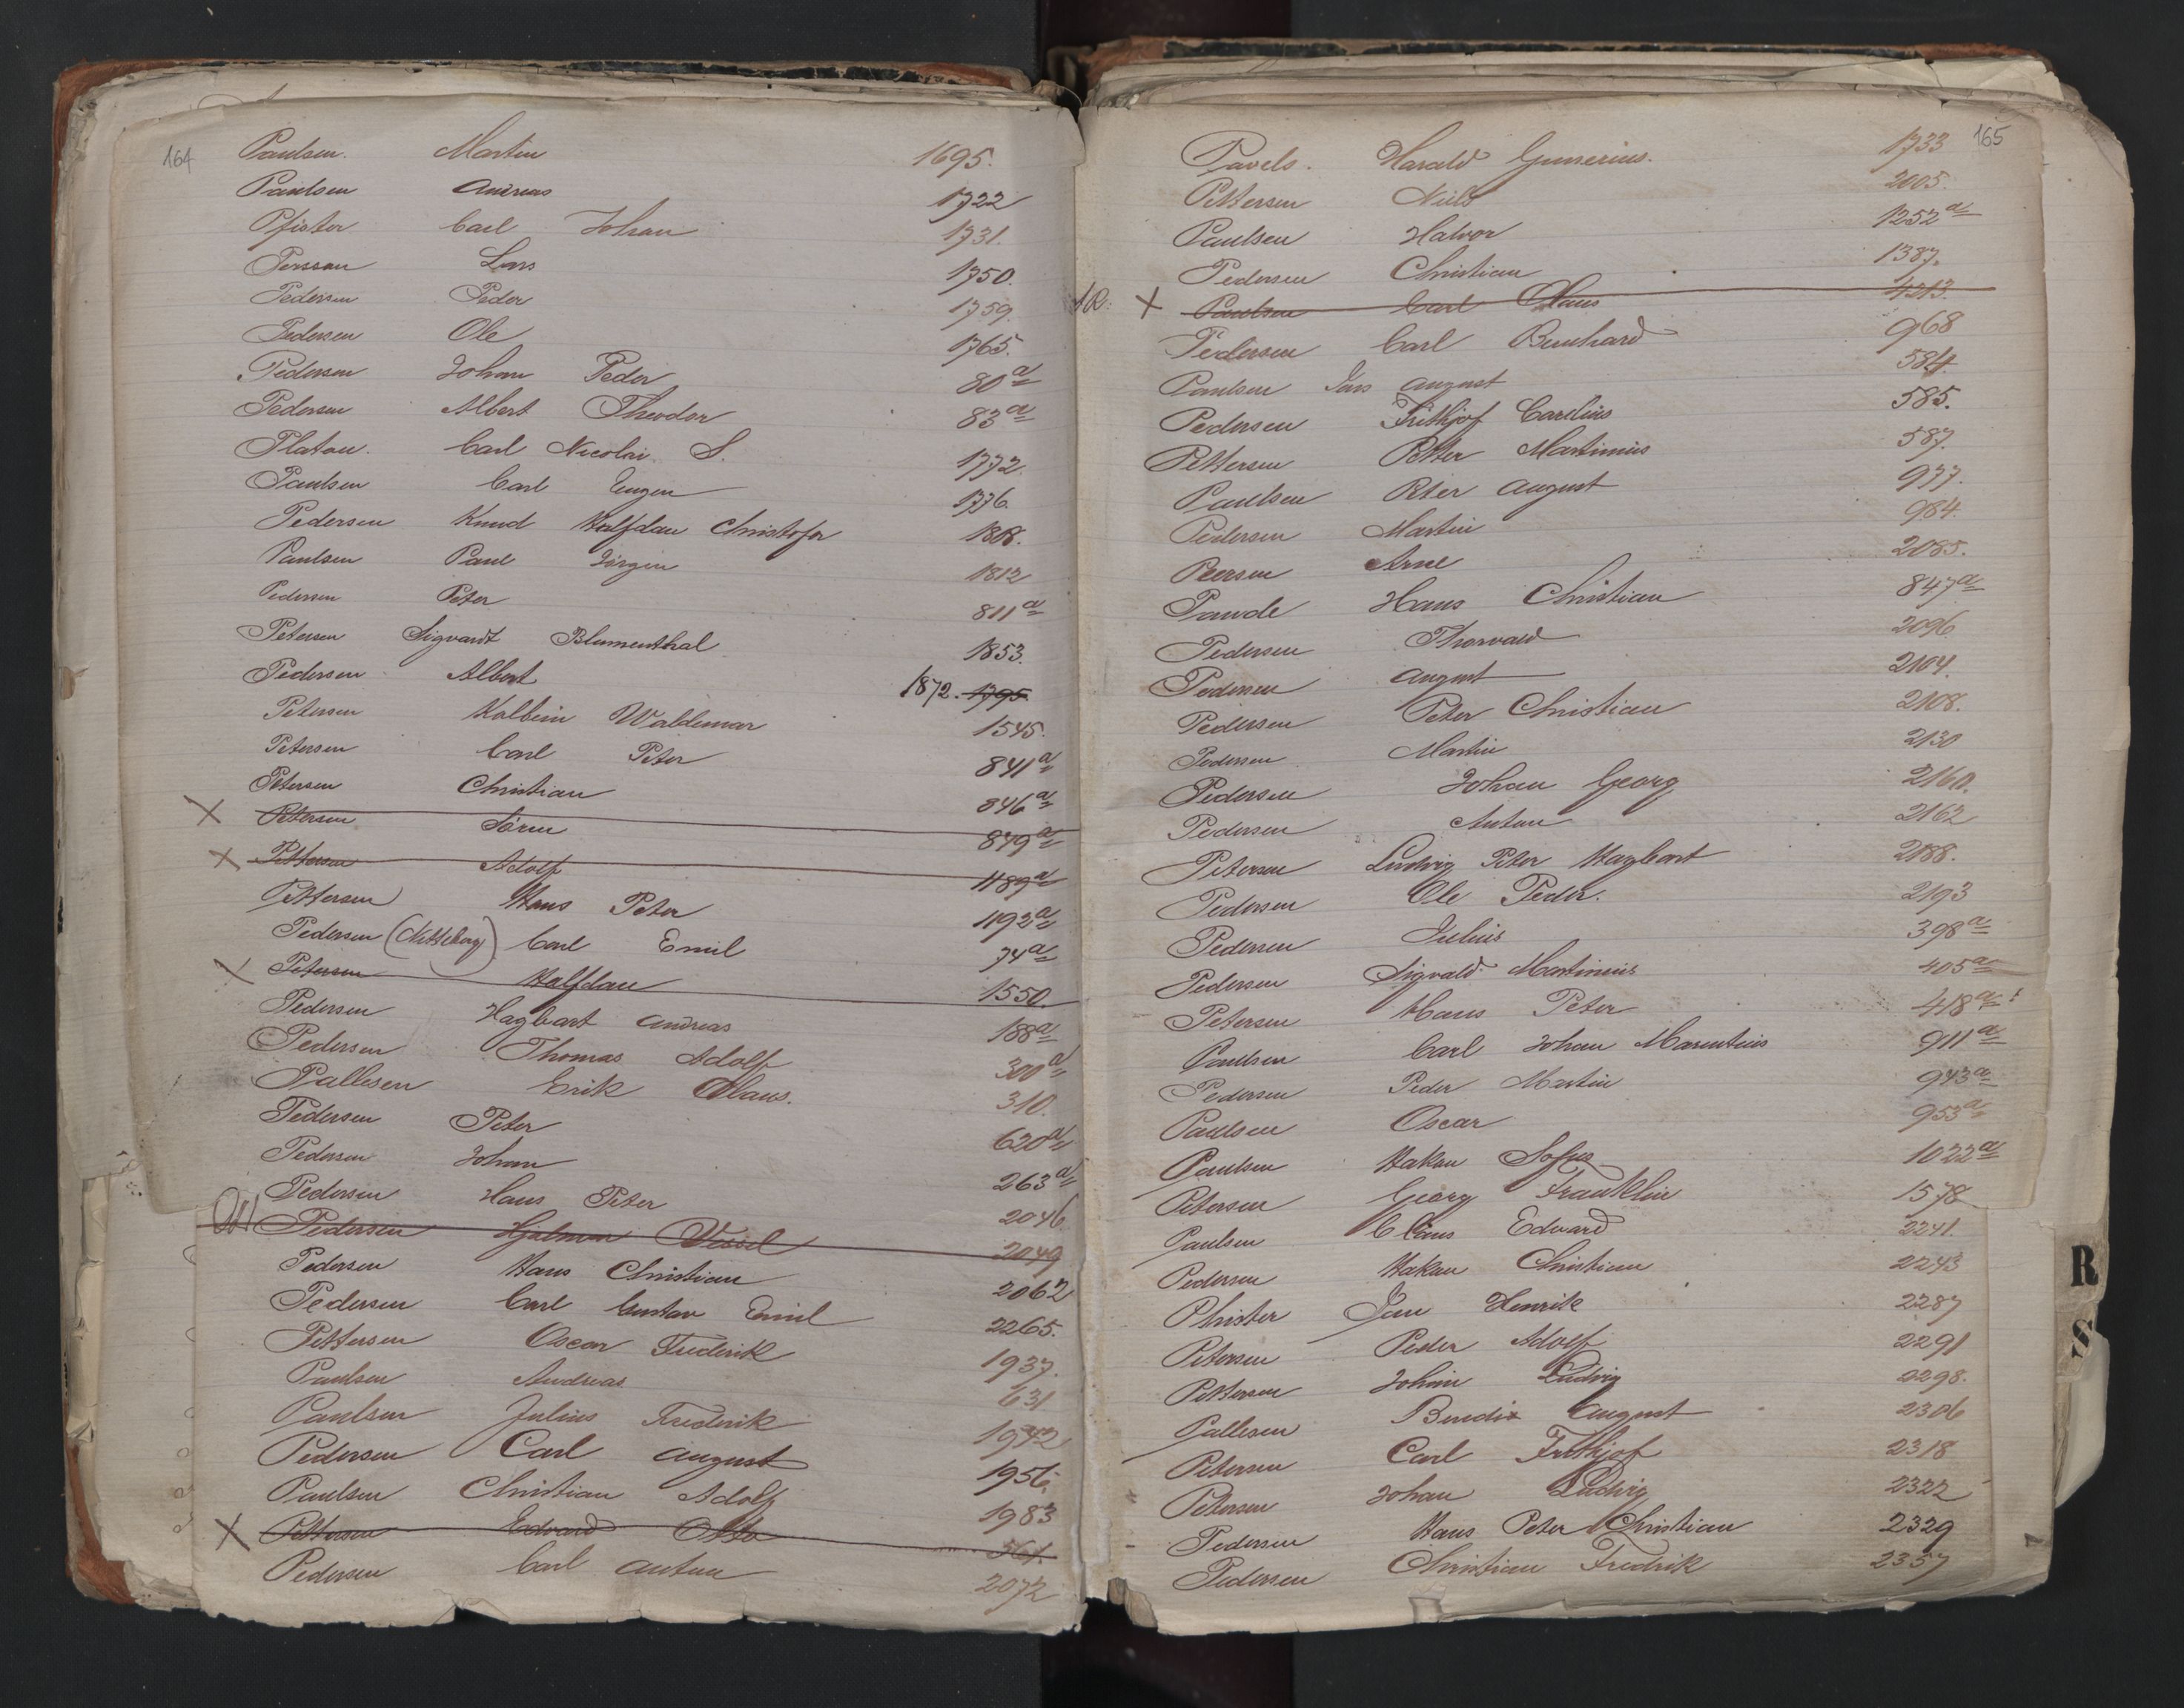 164
Paulsen. Martin 1695.
Paulsen Andreas 1722
Pfister Carl Johan 1731.
Persson Lars 1750.
Pedersen Peder 1759.
Pedersen Ole 1765.
Pedersen Johan Peder 80a
Pedersen Albert Theodor 83a
Platou. Carl Nicolai S. 1772.
Paulsen Carl Eugen 1776.
Pedersen Knud Halfdan Christofer 1808.
Paulsen Paul Jörgen 1812
Pedersen Peter 811a
Petersen Sigvardt Blumenthal 1853.
Pedersen Albert 1872. 1795
Petersen Kolbein Waldemar 1545.
Petersen Carl Peter 841a
Petersen Christian 846a
X Petersen Sören 849a
X Pettersen Adolf 1189a
Pettersen Hans Peter 1192a
Pedersen (Nitteberg) Carl Emil 74a
X Petersen Halfdan 1550.
Pedersen Hagbart Andreas 188a
Pedersen Thomas Adolf 300a
Pallesen Erik Olaus. 310.
Pedersen Peter 620a
Pedersen Johan 263a
Pedersen Hans Peter 2046
Pedersen Hjalmar Wessel 2049
Pedersen Hans Christian 2062
Pedersen Carl Gustav Emil 2265.
Pettersen Oscar Frederik 1937.
Paulsen Andreas 631
Paulsen Julius Frederik 1942
Pedersen Carl August 1956.
Paulsen Christian Adolf 1983
X Pettersen Edvard Otto 561.
Pedersen Carl Anton 2072
165
Pavels. Harald Gunerius. 1733
Pettersen Niels 2005.
Paulsen Halvor 1252a
Pedersen Christian 1387.
X Paulsen Carl Olaus 4213.
Pedersen Carl Bernhard 968
Paulsen Jens August 584.
Pedersen Frithjof Carelius 585.
Pettersen Petter Martinius 587.
Paulsen Peter August 977.
Pedersen Martin 984.
Peersen Arne 2085.
Paude Hans Christian 847a
Pedersen Thorvald 2096
Pedersen August 2104.
Pedersen Peter Christian 2108.
Pedersen Martin 2130
Pedersen Johan Georg 2160.
Pedersen Anton 2162
Petersen Ludvig Peter Hagbart 2188.
Pedersen Ole Peder. 2193
Pedersen Julius 398a
Pedersen Sigvald Martinius 405a
Petersen Hans Peter 418a
Paulsen Carl Johan Marentius 911a
Pedersen Peder Martin 943a
Paulsen Oscar 953a
Paulsen Hakan Sofus 1022a
Petersen Georg Franklin 1578
Paulsen Claus Edvard 2241.
Pedersen Hakan Christian 2243
Phister Jan Henrik 2287
Petersen Peder Adolf 2291
Pettersen Johan Ludvig 2298.
Pallesen Bendix August 2306
Petersen Carl Frithjof 2318
Petersen Johan Ludvig 2322
Pedersen Hans Peter Christian 2329
Pedersen Christian Fredrik 2357
R
S